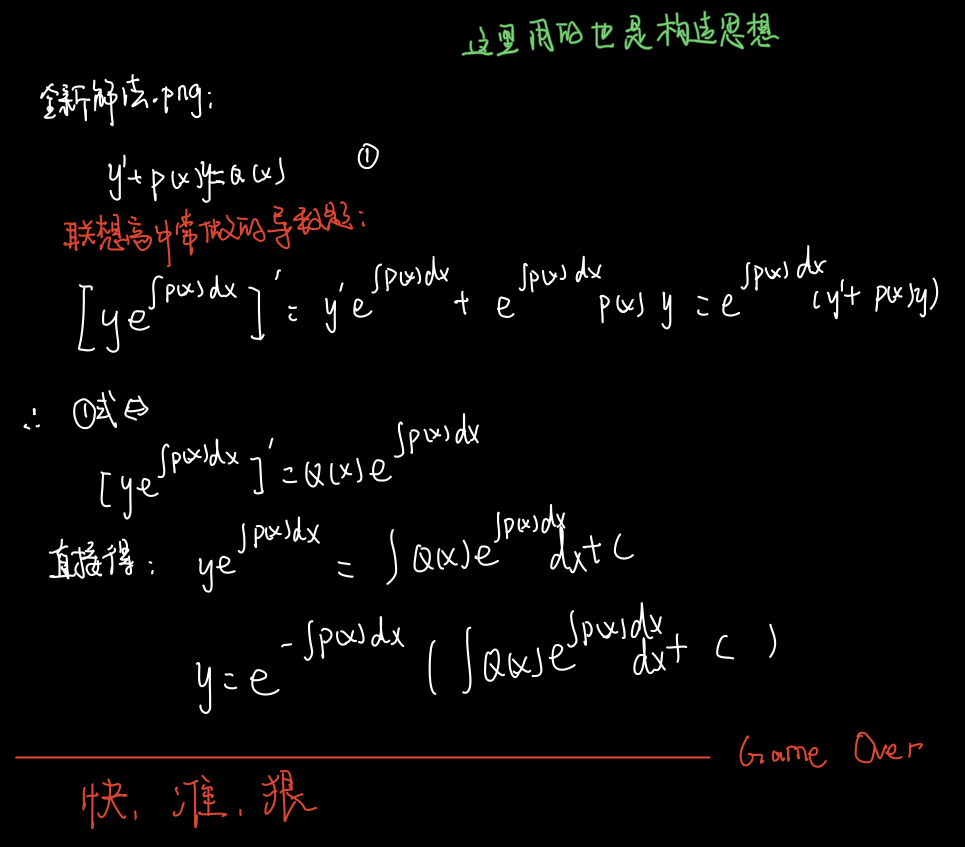 这里用的也是构造思想
全新解法.png:
y'+p(x)y=Q(x) ①
联想高中常做的导数题:
[ye^{∫p(x)dx}]'=y'e^{∫p(x)dx}+e^{∫p(x)dx}p(x)y=e^{∫p(x)dx}(y'+p(x)y)
∴ ①式⇔
[ye^{∫p(x)dx}]'=Q(x)e^{∫p(x)dx}
直接得: ye^{∫p(x)dx}=∫Q(x)e^{∫p(x)dx}dx+C
y=e^{-∫p(x)dx}(∫Q(x)e^{∫p(x)dx}dx+C)
Game Over
快,准,狠